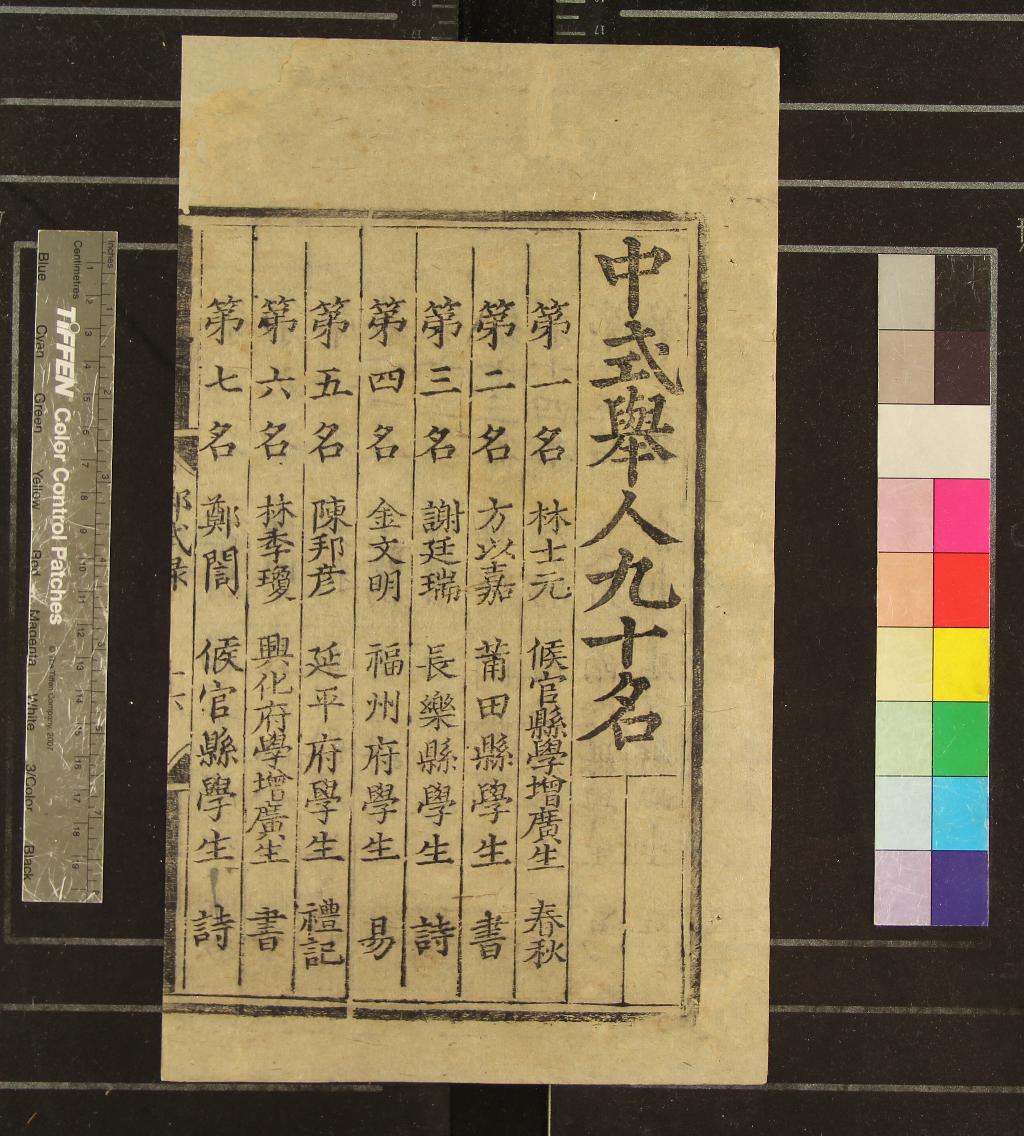 中式舉人九十名
第一名 林士元 候官縣學增廣生 春秋
第二名 方以嘉 莆田縣學生 書
第三名 謝廷瑞 長樂縣學生 詩
第四名 金文明 福州府學生 易
第五名 陳邦彥 延平府學生 禮記
第六名 林季瓊 興化府學增廣生 書
第七名 鄭誾 候官縣學生 詩
試錄
Inches
Centimetres
TIFFEN Color Control Patches
© The Tiffen Company, 2007
Blue Cyan Green Yellow Red Magenta White 3/Color Black